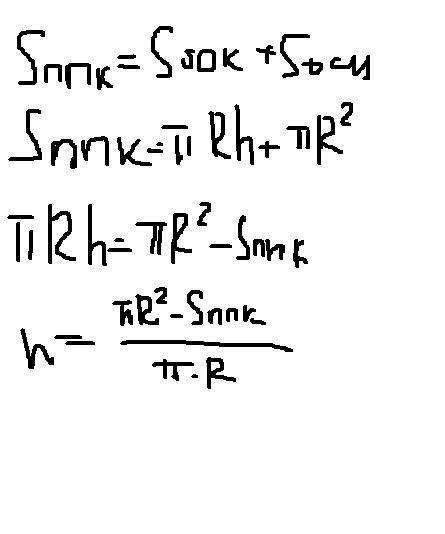 Sппк = Sбок + Sосн
Sппк = πRh + πR²
πRh = πR² - Sппк
h = πR² - Sппк / π · R